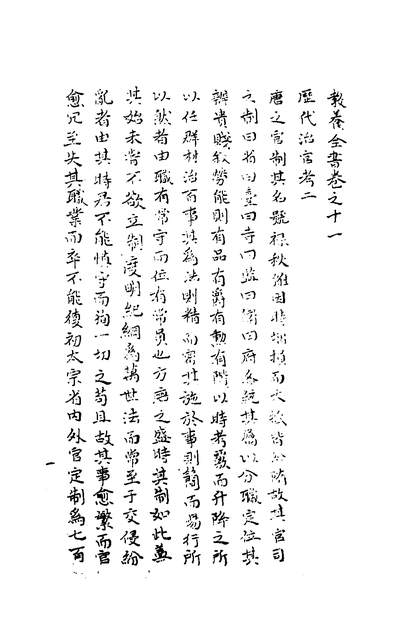 教養全書卷之十一
歷代治官考二
唐之官制其名號祿秩雖因時增損而大抵皆沿隋故其官司
之制曰省曰臺曰寺曰監曰衛曰府各統其屬以分職定位其
辨貴賤敘勞能則有品有爵有勳有階以時考覈而升降之所
以任群材治百事其為法則精而密其施於事則簡而易行所
以然者由職有常守而位有常員也方唐之盛時其制如此蓋
其始未嘗不欲立制度明紀綱為萬世法而常至于交侵紛
亂者由其時君不能慎守而徇一切之苟且故其事愈繁而官
愈冗至失其職業而卒不能復初太宗省內外官定制為七百
一